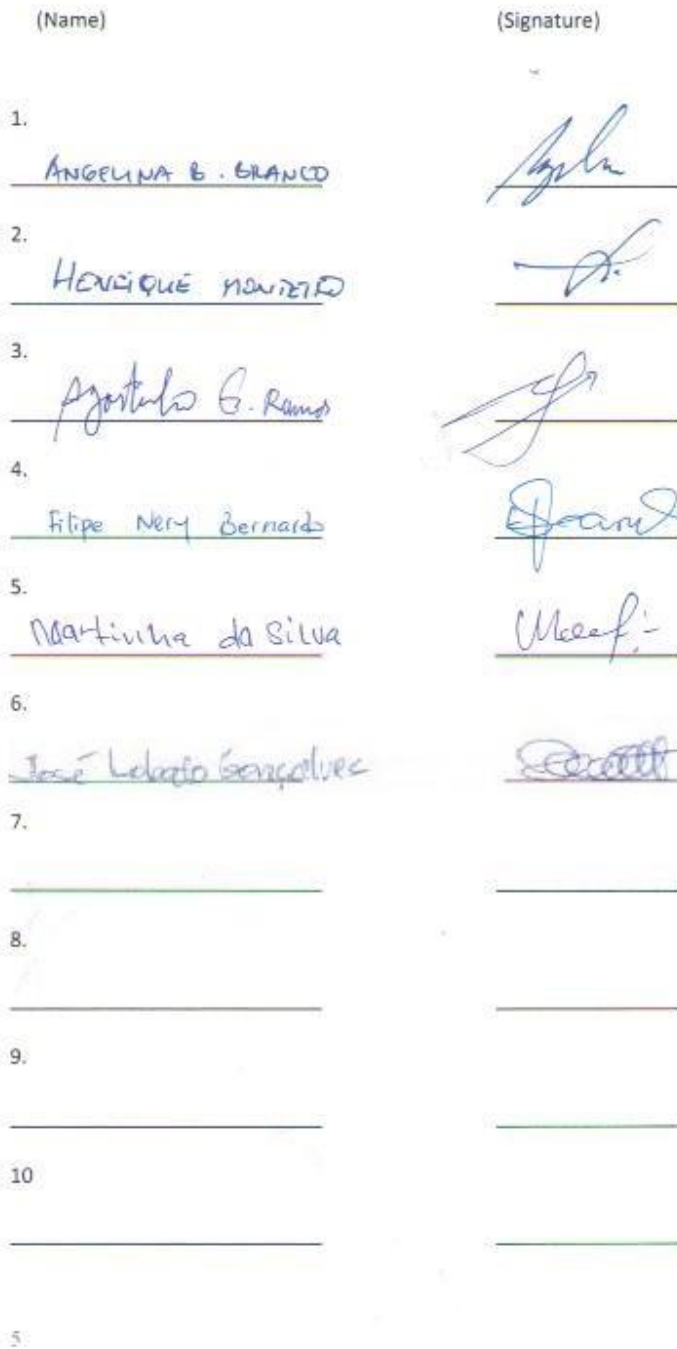 (Name) (Signature)
1.
ANGELINA B. BRANCO
2.
HENRIQUE MONTEIRO
3.
Agostinho G. Ramos
4.
Filipe Nery Bernardo
5.
Martinha da Silva
6.
José Lobato Gonçalves
7.
8.
9.
10
5